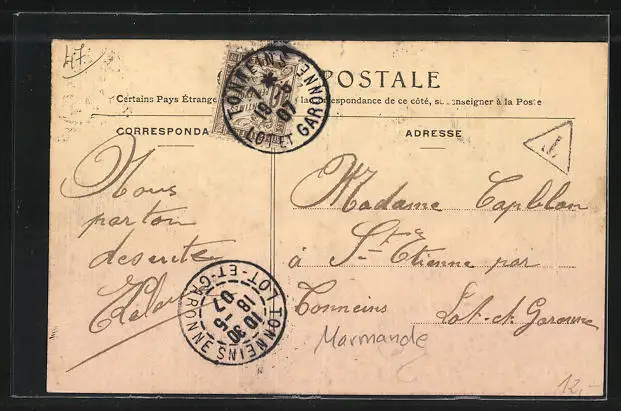 47
POSTALE
Certains Pays Étrange la Correspondance de ce côté, se renseigner à la Poste
CORRESPONDA
ADRESSE
TONNEINS
7 * 5
18 - 6
07
LOT ET GARONNE
T
Nous
parton
de suite
Madame Capblan
à St Etienne par
Tonneins
Lot-et-Garonne
Marmande
TONNEINS
10 30
18 5
07
LOT-ET-GARONNE
12,-